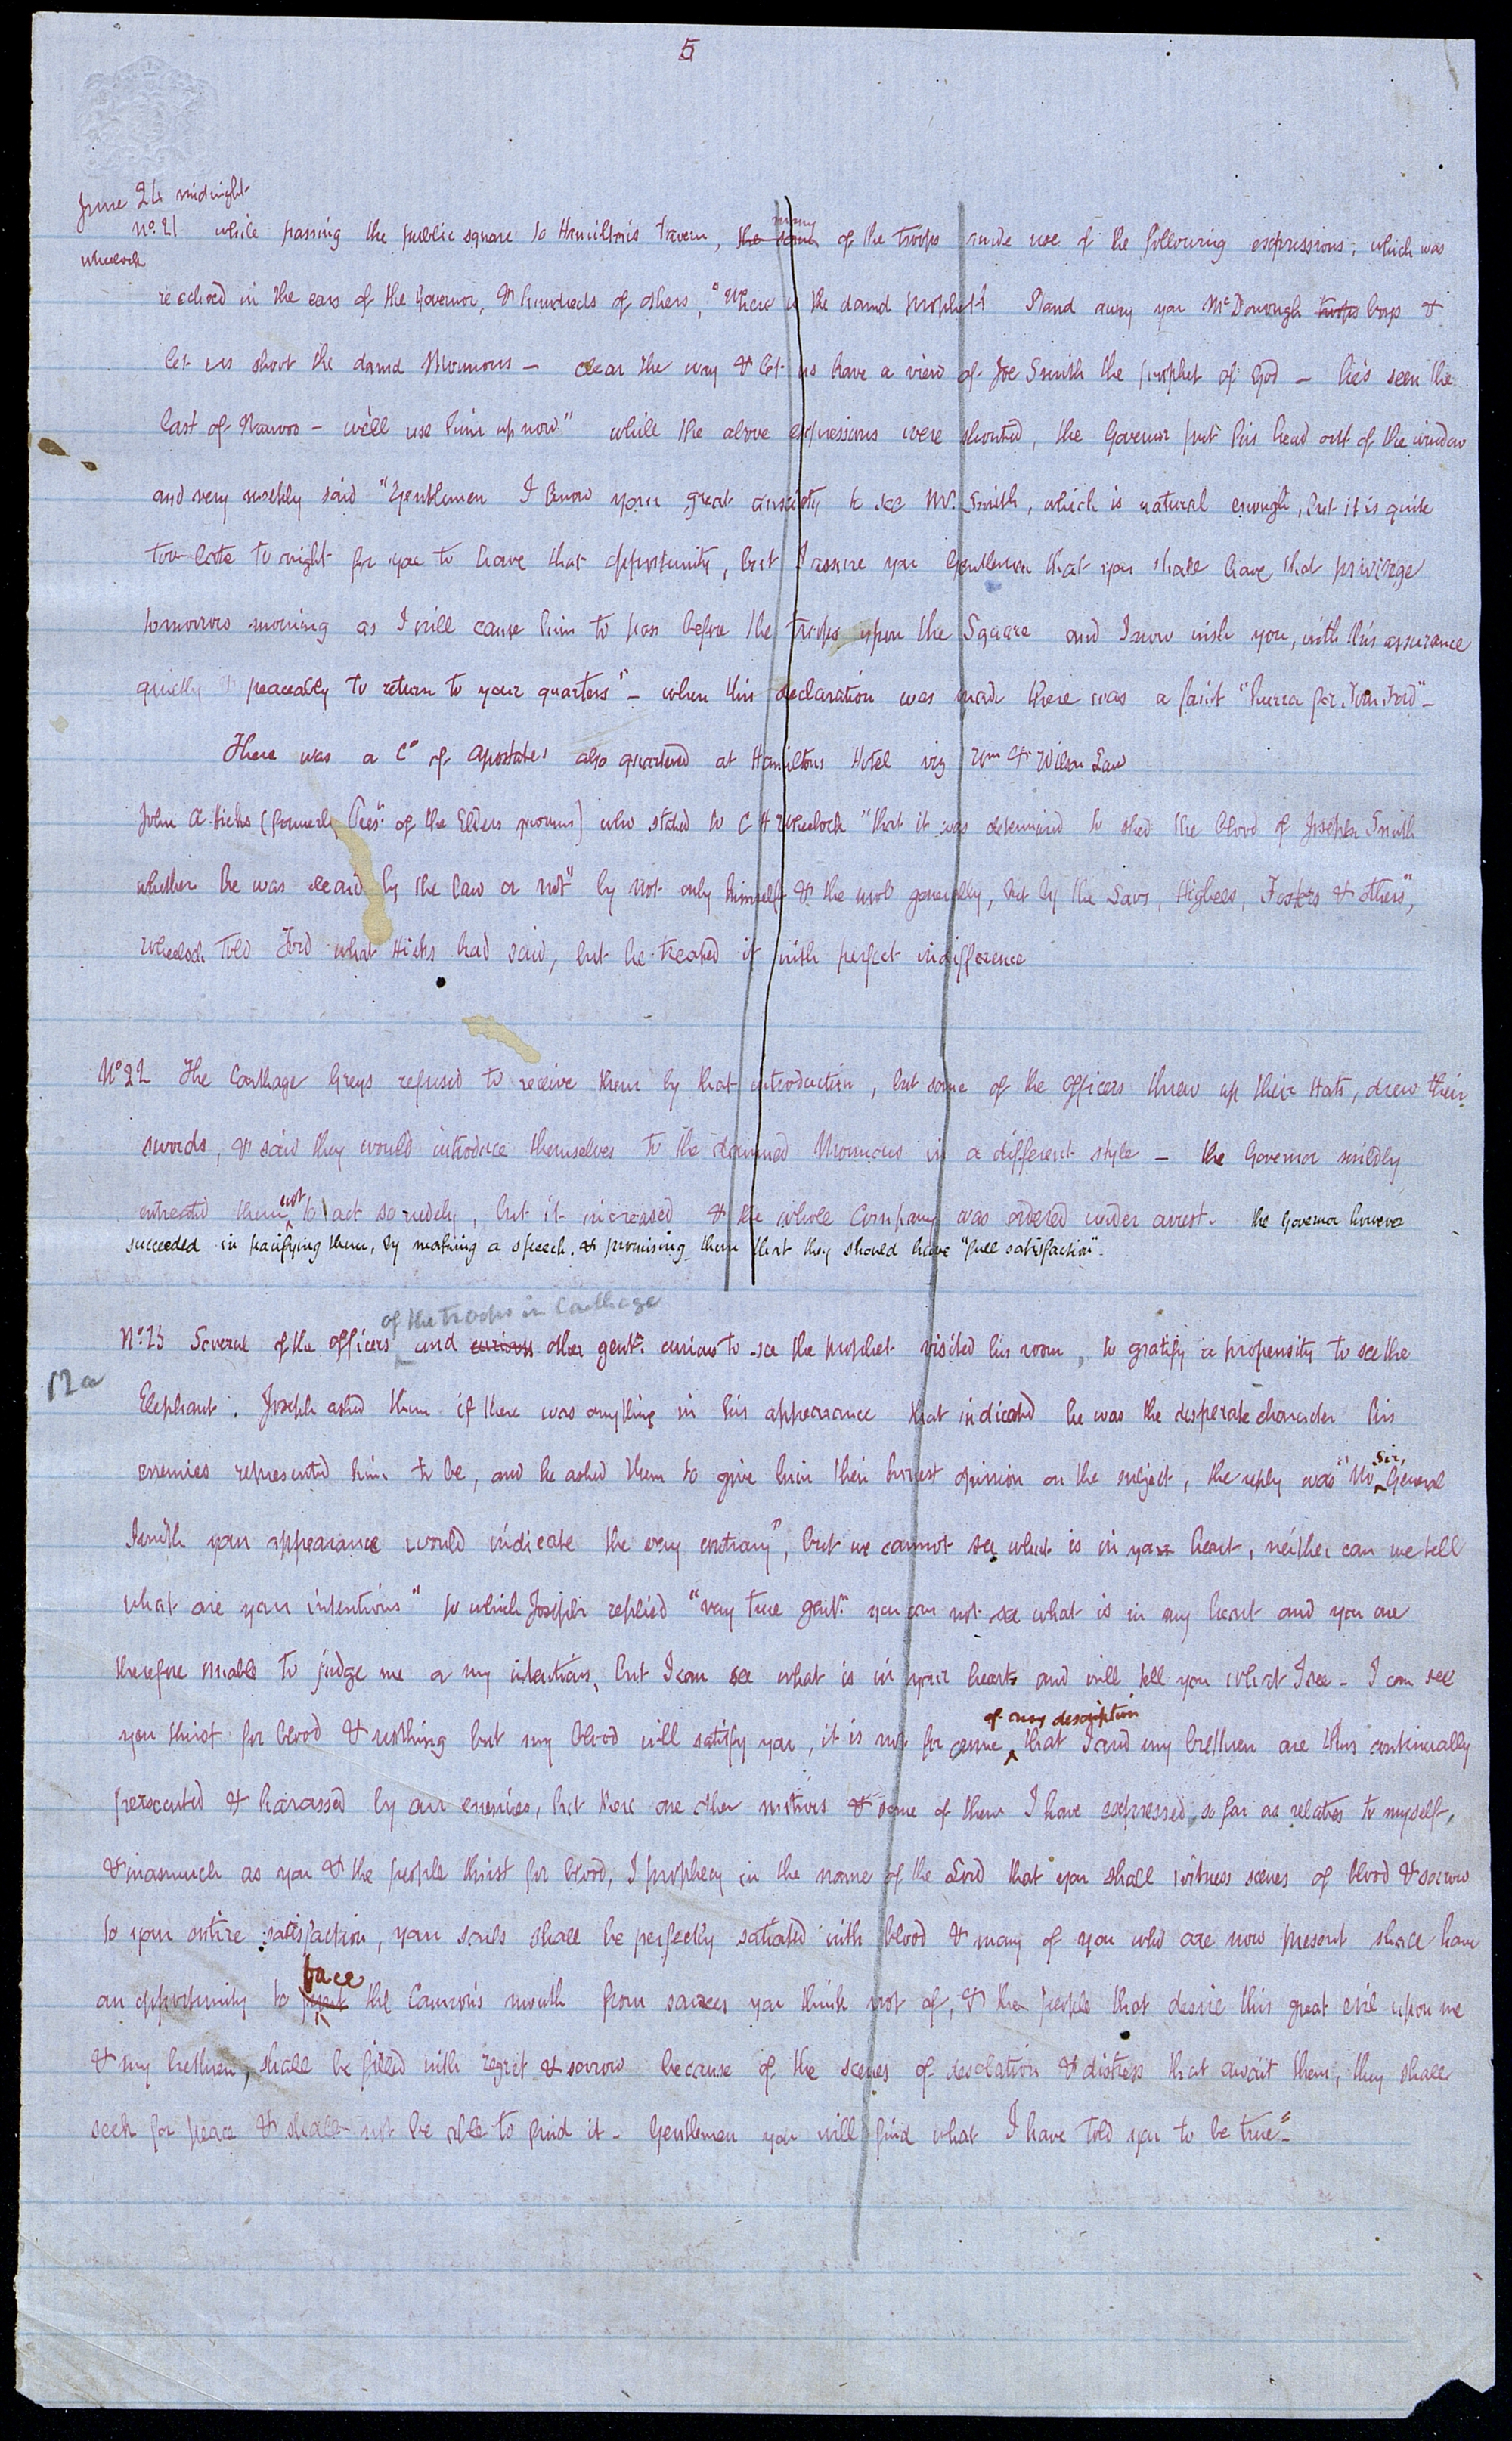 5
June 24 midnight
No. 21 while passing the public square to Hamilton's tavern, the some many of the troops made use of the following expressions, which was
Wheelock
re echoed in the ears of the Governor, & hundreds of others, "Where is the damd prophet Stand away you McDonough troops boys &
let us shoot the damd Mormons — clear the way & let us have a view of Joe Smith the prophet of God — he's seen the
last of Nauvoo — we'll use him up now" while the above expressions were shouted, the Governor put his head out of the window
and very meekly said "Gentlemen I know your great anxiety to see Mr. Smith, which is natural enough, but it is quite
too late to night for you to have that opportunity, but I assure you Gentlemen that you shall have that privilege
tomorrow morning as I will cause him to pass before the troops upon the Square and I now wish you, with this assurance
quietly & peaceably to return to your quarters" — when this declaration was made there was a faint "hurra for Tom Ford" —
There was a Co of apostates also quartered at Hamiltons Hotel viz Wm & Wilson Law
John A Hicks (formerly Prest. of the Elders quorum) who stated to C H Wheelock "that it was determined to shed the blood of Joseph Smith
whether he was cleard by the law or not" by not only himself & the mob generally, but by the Laws, Higbees, Fosters & others",
Wheelock told Ford what Hicks had said, but he treated it with perfect indifference
No 22 The Carthage Greys refused to receive them by that introduction, but some of the officers threw up their Hats, drew their
swords, & said they would introduce themselves to the damned Mormons in a different style — the Governor mildly
entreated them not to act so rudely, but it increased & the whole Company was ordered under arrest. the Governor however
succeeded in pacifying them, by making a speech, & promising them that they should have "full satisfaction".
of the troops in Carthage
No. 23 Several of the officers and curious other gentn. curious to see the prophet visited his room, to gratify a propensity to see the
12a
Elephant. Joseph asked them if there was anything in his appearance that indicated he was the desperate character his
enemies represented him to be, and he asked them to give him their honest opinion on the subject, the reply was "No Sir, General
Smith your appearance would indicate the very contrary", but we cannot see what is in your heart, neither can we tell
what are your intentions" to which Joseph replied "very true gentn. you can not see what is in my heart and you are
therefore unable to judge me or my intentions, but I can see what is in your hearts and will tell you what I see — I can see
you thirst for blood & nothing but my blood will satisfy you, it is not for crime of any description that I and my brethren are thus continually
persecuted & harassed by our enemies, but there are other motives & some of them I have expressed, so far as relates to myself,
& inasmuch as you & the people thirst for blood, I prophecy in the name of the Lord that you shall witness scenes of blood & sorrow
to your entire satisfaction, your souls shall be perfectly satiated with blood & many of you who are now present shall have
an opportunity to face the Cannon's mouth from sources you think not of, & the people that desire this great evil upon me
& my brethren, shall be filled with regret & sorrow because of the scenes of desolation & distress that await them, they shall
seek for peace & shall not be able to find it — Gentlemen you will find what I have told you to be true" —